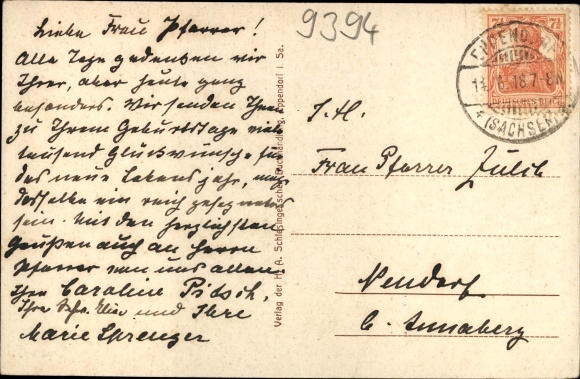 Liebe Frau Pfarrer!
Alle Tage gedenken wir
Ihrer, aber heute ganz
besonders. Wir senden Ihnen
zu Ihrem Geburtstage viele
tausend Glückwünsche für
das neue Lebensjahr, mag
dasselbe ein reich gesegnetes
sein. Mit den herzlichsten
Grüßen auch an Herrn
Pfarrer von uns allen
Ihre Caroline Pitsch,
Ihre und Ihre
Marie Sprenger
Verlag der H. A. Schlesinger'schen Buchhandlung, Eppendorf i. Sa.
9394
7½ 7½
DEUTSCHES REICH
EPPENDORF
6.18.7-8
(SACHSEN)
I. H.
Frau Pfarrer
Neudorf
b. Annaberg